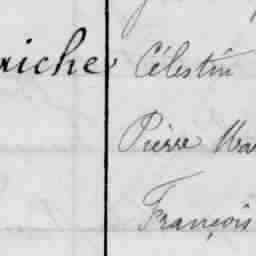 riche Célestin
Pierre Mar
François